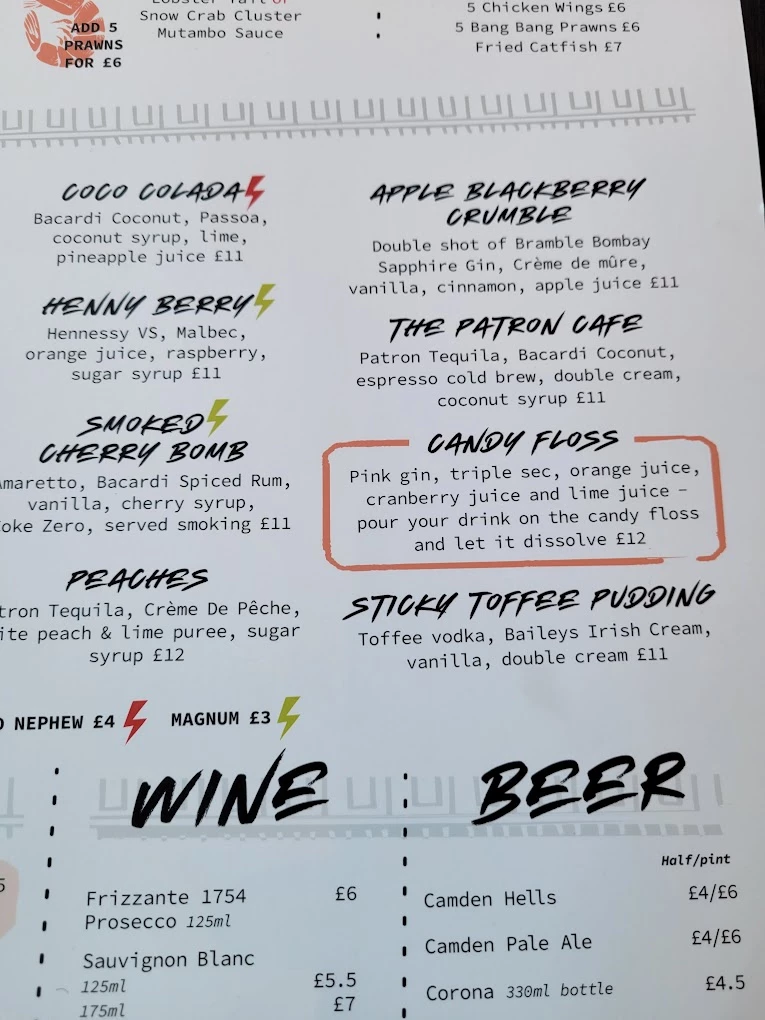 ADD 5
PRAWNS
FOR £6
Snow Crab Cluster
Mutambo Sauce
5 Chicken Wings £6
5 Bang Bang Prawns £6
Fried Catfish £7
COCO COLADA
Bacardi Coconut, Passoa,
coconut syrup, lime,
pineapple juice £11
HENNY BERRY
Hennessy VS, Malbec,
orange juice, raspberry,
sugar syrup £11
SMOKED
CHERRY BOMB
Amaretto, Bacardi Spiced Rum,
vanilla, cherry syrup,
oke Zero, served smoking £11
PEACHES
tron Tequila, Crème De Pêche,
ite peach & lime puree, sugar
syrup £12
NEPHEW £4 MAGNUM £3
APPLE BLACKBERRY
CRUMBLE
Double shot of Bramble Bombay
Sapphire Gin, Crème de mûre,
vanilla, cinnamon, apple juice £11
THE PATRON CAFE
Patron Tequila, Bacardi Coconut,
espresso cold brew, double cream,
coconut syrup £11
CANDY FLOSS
Pink gin, triple sec, orange juice,
cranberry juice and lime juice –
pour your drink on the candy floss
and let it dissolve £12
STICKY TOFFEE PUDDING
Toffee vodka, Baileys Irish Cream,
vanilla, double cream £11
WINE
Frizzante 1754 £6
Prosecco 125ml
Sauvignon Blanc
125ml £5.5
175ml £7
BEER
Half/pint
Camden Hells £4/£6
Camden Pale Ale £4/£6
Corona 330ml bottle £4.5